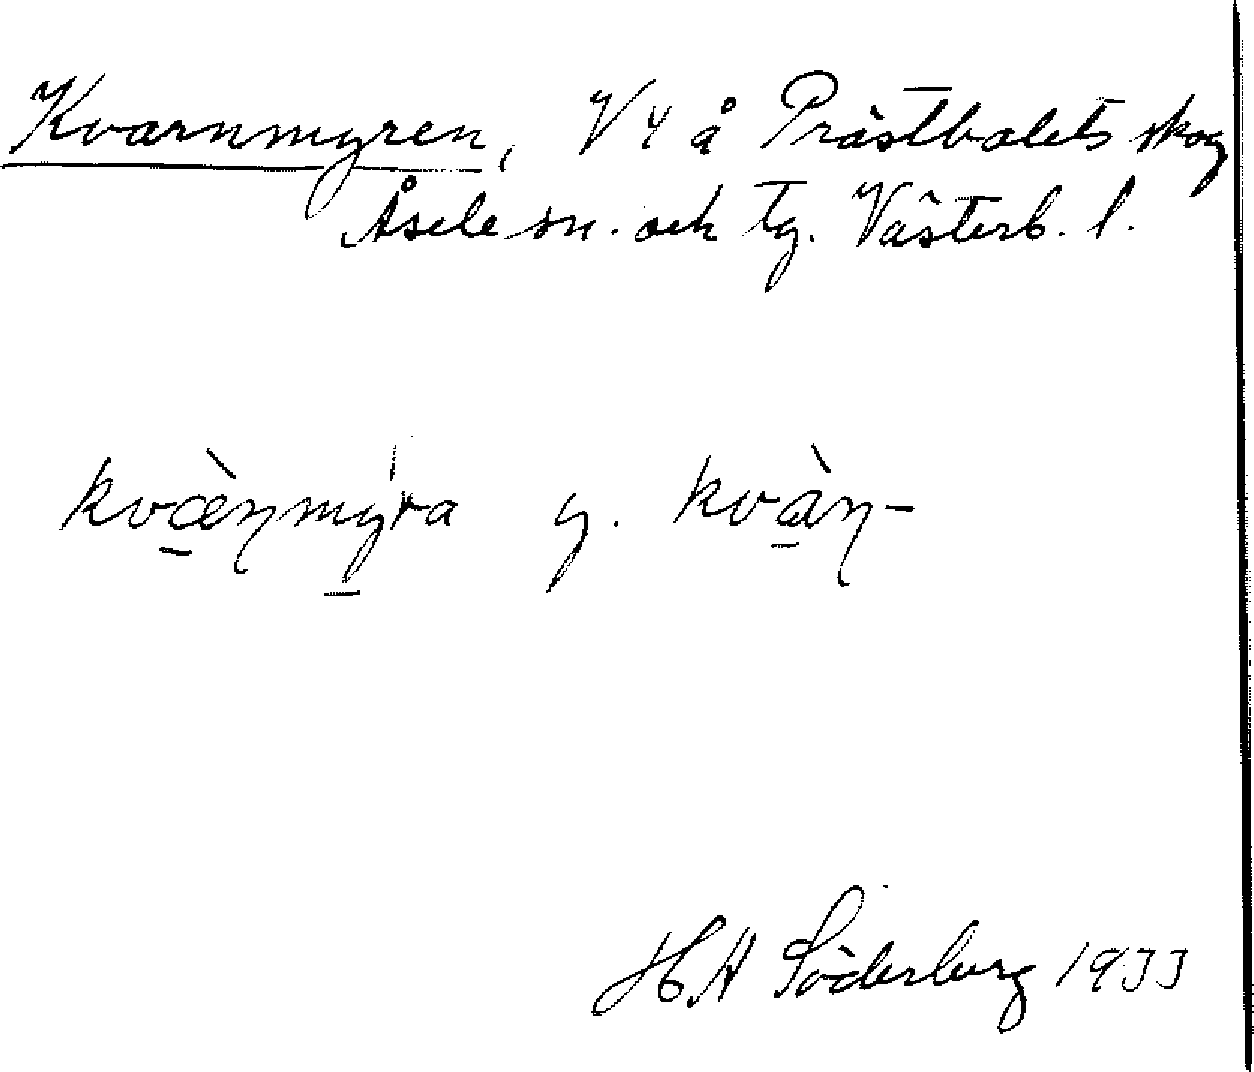 Kvarnmyren, V4 å Prästbolets skog
Åsele sn. och tg. Västerb. l.
kvæ̠̀ɳmý̠ra y. kvà̠ɳ-
H A Söderberg 1933